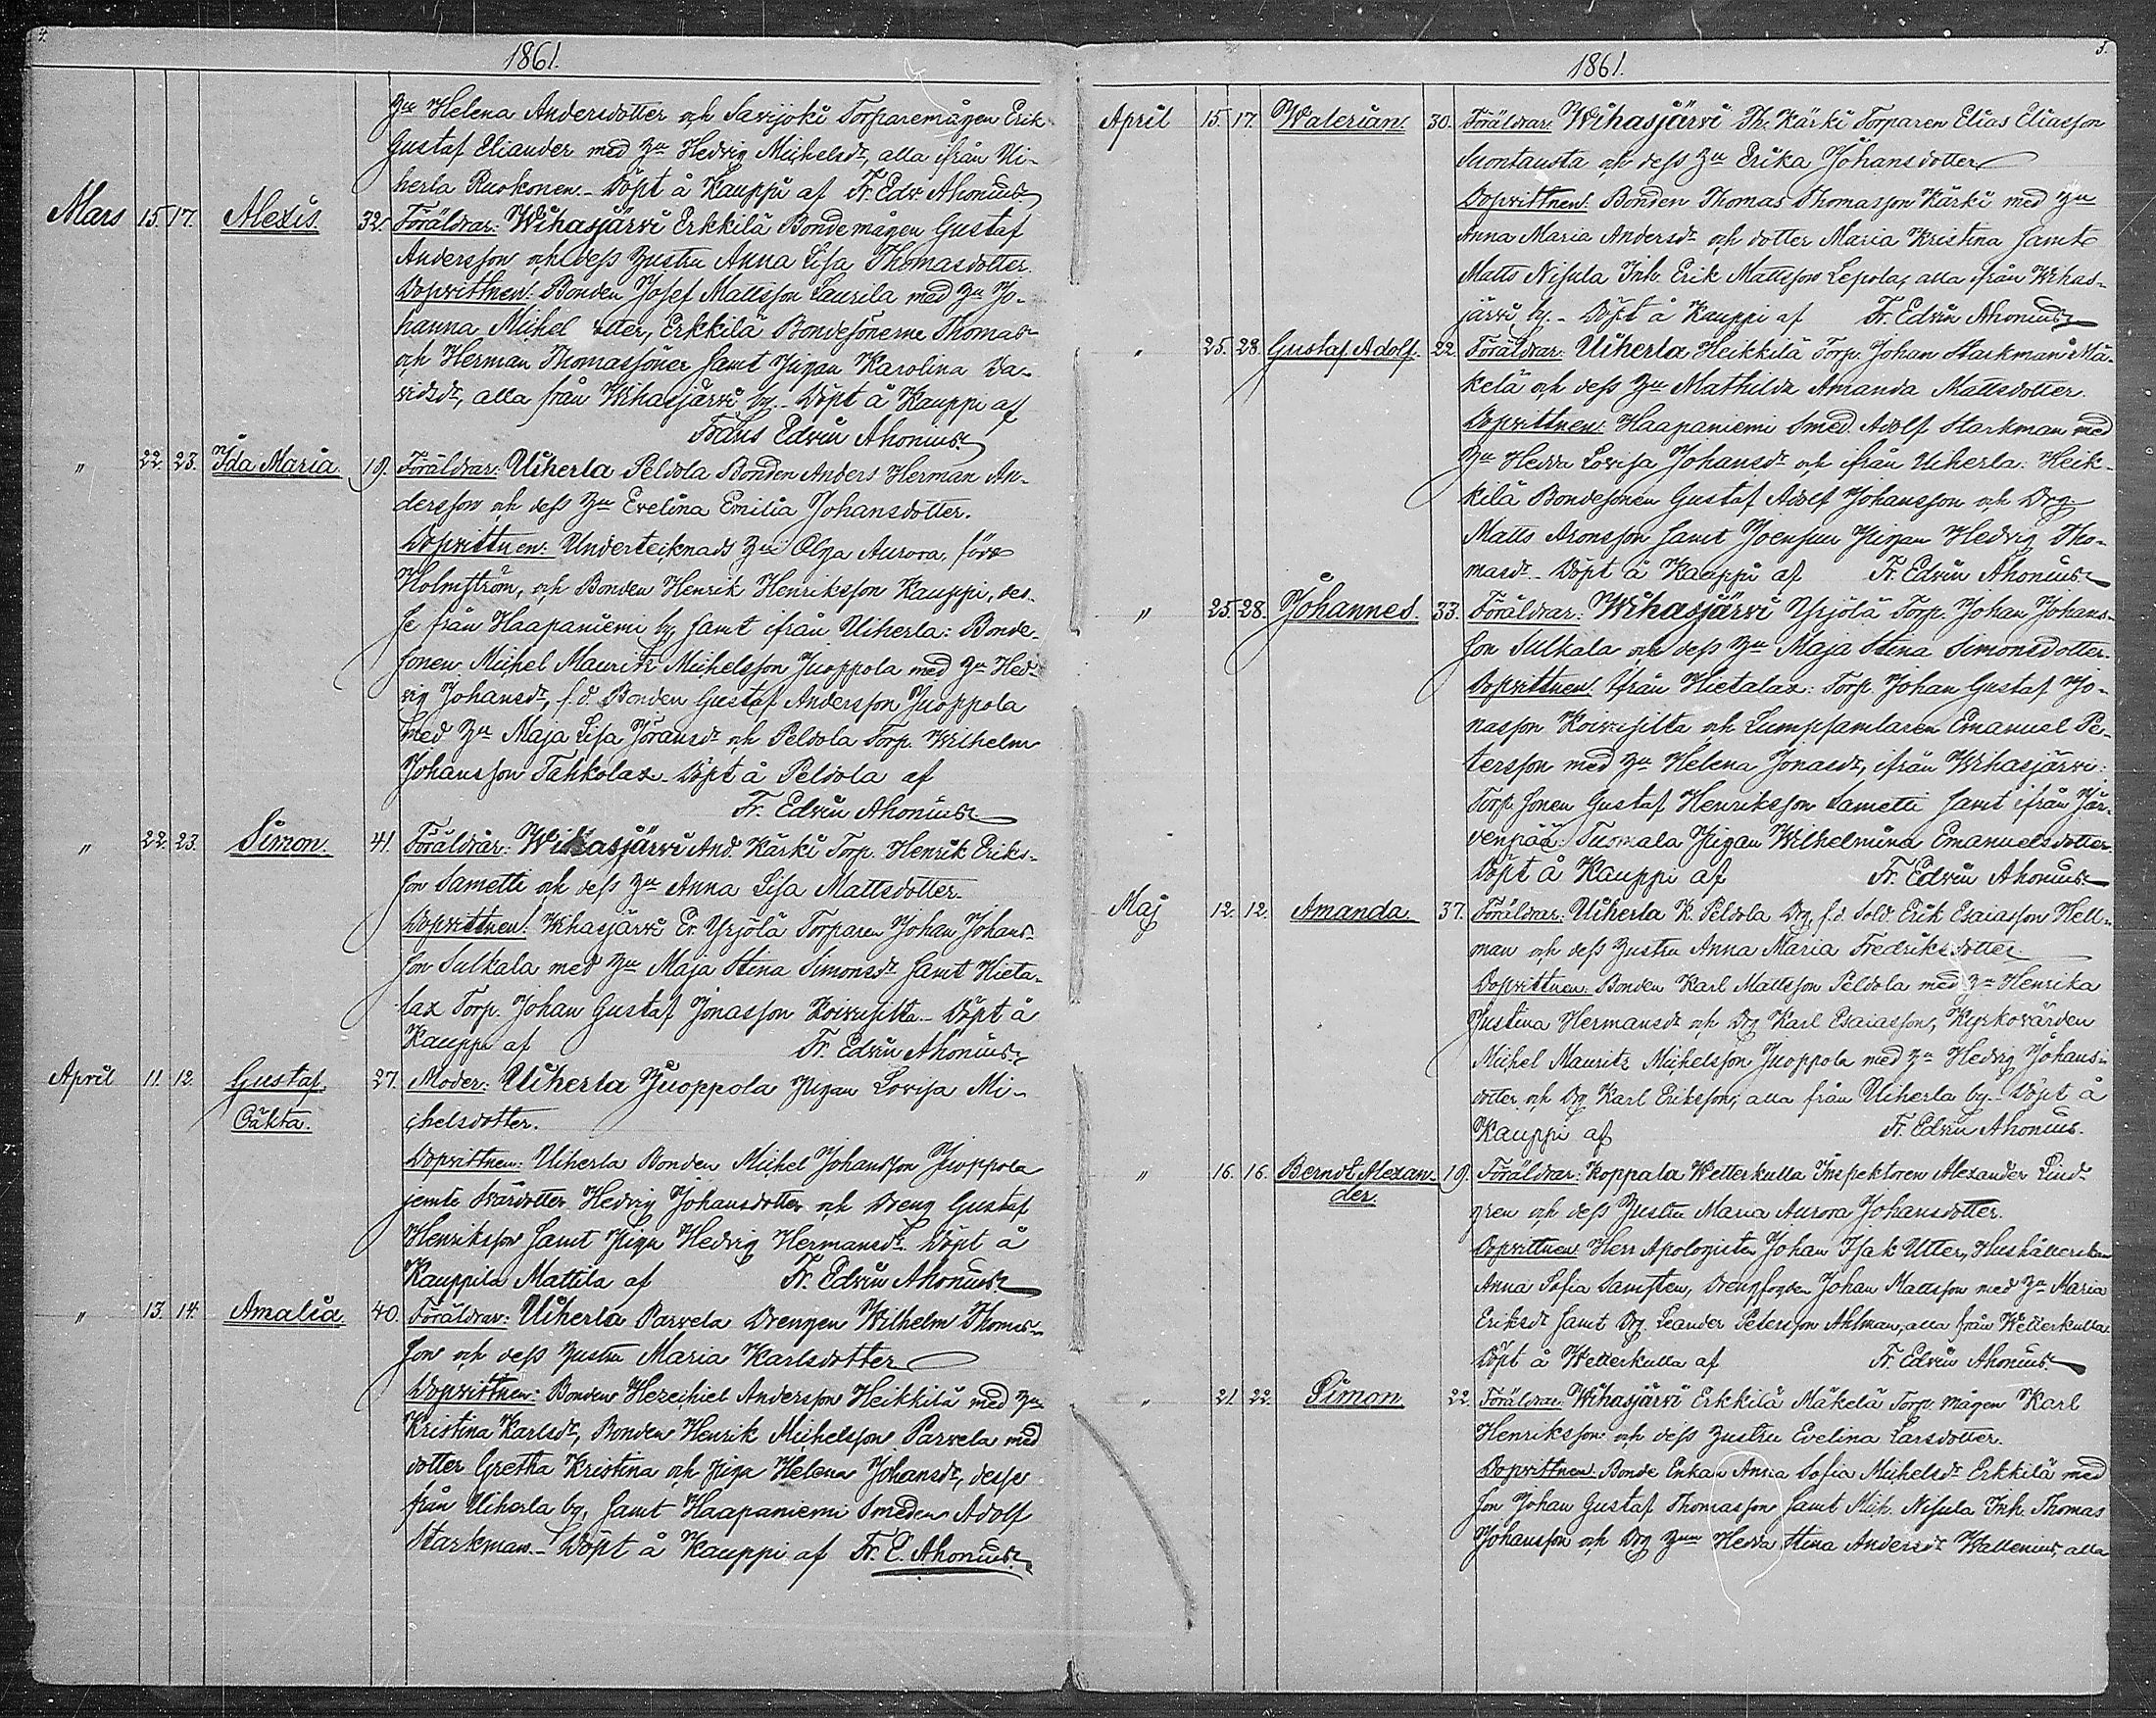 4.
1861.
Hu Helena Andersdotter och Savijoki Torparemågen Erik
Gustaf Eliander med Hu Hedvig Michelsdr, alla ifrån Ui-
herla Ruokonen. Döpt å Kauppi af Fr. Edv. Ahonius
Mars 15. 17. Alexis. 32. Föräldrar: Wihasjärvi Erkkilä Bondemågen Gustaf
Andersson och dess Hustru Anna Lisa Thomasdotter.
Dopvittnen: Bonden Josef Mattsson Laurila med Hu Jo-
hanna Michel dotter, Erkkilä Bondesönerne Thomas
och Herman Thomassöner samt Pigan Karolina Da-
vidsdr, alla från Wihasjärvi by. Döpt å Kauppi af
Frans Edvin Ahonius.
" 22. 23. Ida Maria. 19. Föräldrar: Uiherla Peldola Bonden Anders Herman An-
dersson och dess Hu Evelina Emilia Johansdotter.
Dopvittnen: Undertecknads Hu Olga Aurora, född
Holmström, och Bonden Henrik Henriksson Kauppi, des-
se från Haapaniemi by samt ifrån Uiherla: Bonde-
sonen Michel Mauritz Michelsson Juoppola med Hu Hed-
vig Johansdr, f.d. Bonden Gustaf Andersson Juoppola
med Hu Maja Lisa Jöransdr och Peldola Torp. Wilhelm
Johansson Tahkolax. Döpt å Peldola af
Fr. Edvin Ahonius
" 22. 23. Simon. 41. Föräldrar: Wihasjärvi And. Kärki Torp. Henrik Eriks-
son Sametti och dess Hu Anna Lisa Mattsdotter.
Dopvittnen: Wihasjärvi Er. Yrjölä Torparen Johan Johans-
son Sulkala med Hu Maja Stina Simonsdr samt Hieta-
lax Torp. Johan Gustaf Jonasson Koivusilta. Döpt å
Kauppi af Fr. Edvin Ahonius
April 11. 12. Gustaf. 27. Moder: Uiherla Juoppola Pigan Lovisa Mi-
Oäkta. chelsdotter.
Dopvittnen: Uiherla Bonden Michel Johansson Juoppola
jemte Svärdotter Hedvig Johansdotter och Dreng Gustaf
Henriksson samt Piga Hedvig Hermansdr. Döpt å
Kauppila Mattila af Fr. Edvin Ahonius
" 13. 14. Amalia. 40. Föräldrar: Uiherla Parvela Drengen Wilhelm Thomas-
son och dess Hustru Maria Karlsdotter
Dopvittnen: Bonden Hezechiel Andersson Heikkilä med Hu
Kristina Karlsdr, Bonden Henrik Michelsson Parvela med
dotter Gretha Kristina och Piga Helena Johansdr, desse
från Uiherla by, samt Haapaniemi Smeden Adolf
Starkman. Döpt å Kauppi af Fr. E. Ahonius.
5.
1861.
April 15. 17. Walerian. 30. Föräldrar: Wihasjärvi Th. Kärki Torparen Elias Eliasson
Suontausta och dess Hu Erika Johansdotter
Dopvittnen: Bonden Thomas Thomasson Kärki med Hu
Anna Maria Andersdr och dotter Maria Kristina samt
Matts Nisula Inh. Erik Mattsson Lepola, alla från Wihas-
järvi by. Döpt å Kauppi af Fr. Edvin Ahonius
" 25. 28. Gustaf Adolf. 22. Föräldrar: Uiherla Heikkilä Torp. Johan Starkman Mä-
kelä och dess Hu Mathilda Amanda Mattsdotter.
Dopvittnen: Haapaniemi Smed. Adolf Starkman med
Hu Hedda Lovisa Johansdr och ifrån Uiherla: Heik-
kilä Bondesonen Gustaf Adolf Johansson och Drg
Matts Aronsson samt Joensuu Pigan Hedvig Tho-
masdr. Döpt å Kauppi af Fr. Edvin Ahonius
" 25. 28. Johannes. 33. Föräldrar: Wihasjärvi Yrjölä Torp. Johan Johans-
son Sulkala och dess Hu Maja Stina Simonsdotter.
Dopvittnen: Ifrån Hietalax: Torp. Johan Gustaf Jo-
nasson Koivusilta och Lumpsamlaren Emanuel Pe-
tersson med Hu Helena Jonasdr, ifrån Wihasjärvi:
Torp. Sonen Gustaf Henriksson Sametti samt ifrån Jär-
venpää: Tuomala Pigan Wilhelmina Emanuelsdotter.
Döpt å Kauppi af Fr. Edvin Ahonius
Maj 12. 12. Amanda. 37. Föräldrar: Uiherla K. Peldola Drg, f.d. Sold. Erik Esaiasson Hell-
man och dess Hustru Anna Maria Fredriksdotter
Dopvittnen: Bonden Karl Mattsson Peldola med Hu Henrika
Justina Hermansdr och Drg Karl Esaiasson, Kyrkovärden
Michel Mauritz Michelsson Juoppola med Hu Hedvig Johans-
dotter och Drg Karl Eriksson, alla från Uiherla by. Döpt å
Kauppi af Fr. Edvin Ahonius.
" 16. 16. Berndt Alexan- 19. Föräldrar: Koppala Wetterkulla Inspektoren Alexander Lind-
der. gren och dess Hustru Maria Aurora Johansdotter.
Dopvittnen: Herr Apologisten Johan Isak Utter, Hushållerskan
Anna Sofia Samsten, Drengfogden Johan Mattsson med Hu Maria
Eriksdr samt Drg. Leander Petersson Ahlman, alla från Wetterkulla.
Döpt å Wetterkulla af Fr. Edvin Ahonius
" 21. 22. Simon. 22. Föräldrar: Wihasjärvi Erkkilä Mäkelä Torp. mågen Karl
Henriksson och dess Hustru Evelina Larsdotter.
Dopvittnen: Bonde Enkan Anna Sofia Michelsdr Erkkilä med
Son Johan Gustaf Thomasson samt Mich. Nisula Inh. Thomas
Johansson och Drg Hun Hedda Stina Andersdr Wallenius, alla